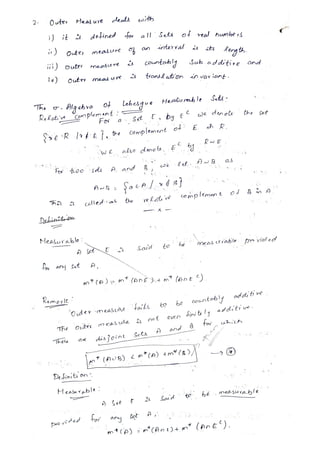 2. Outer Measure deals with
i) it is defined for all sets of real numbers
ii) outer measure of an interval is its length.
iii) outer measure is countably Sub additive and
iv) Outer measure is translation invariant.
The σ-Algebra Of Lebesgue Measurable Sets.
Relative Complement:
For a Set E, by E^c we denote the set
{x ∈ R | x ∉ E}, the complement of E in R.
We also denote E^c by R~E
For two sets A and B, we let A~B as
A~B = {x ∈ A / x ∉ B}
This is called as the relative complement of B in A
Definition
Measurable
A set E is said to be measurable provided
for any set A,
m*(A) = m*(A∩E) + m*(A∩E^c)
Remark:
Outer measure fails to be countably additive
The outer measure is not even finitely additive
There are disjoint sets A and B for which
m*(A∪B) < m*(A) + m*(B)
Definition:
Measurable:
A set E is said to be measurable
provided for any set A,
m*(A) = m*(A∩E) + m*(A∩E^c).